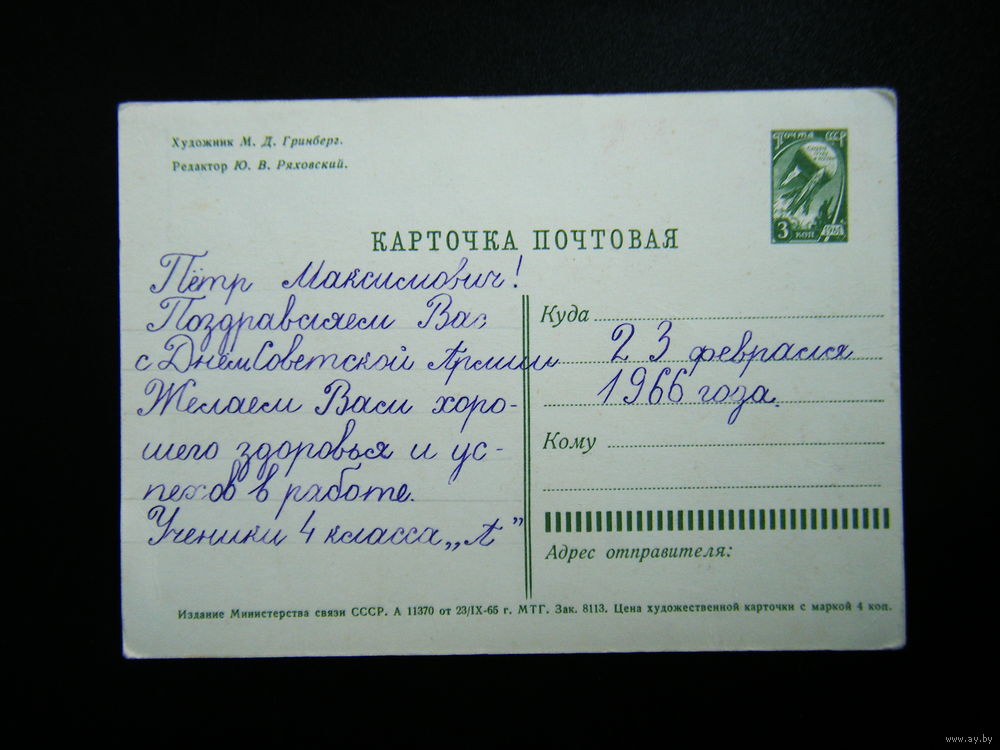 Художник М. Д. Гринберг.
Редактор Ю. В. Ряховский.
почта СССР
3 коп 1961
КАРТОЧКА ПОЧТОВАЯ
Пётр Максимович!
Поздравляем Вас
с Днём Советской Армии
Желаем Вам хоро-
шего здоровья и ус-
пехов в работе.
Ученики 4 класса „А"
Куда
23 февраля
1966 года.
Кому
Адрес отправителя:
Издание Министерства связи СССР. А 11370 от 23/IX-65 г. МТГ. Зак. 8113. Цена художественной карточки с маркой 4 коп.
www.ay.by